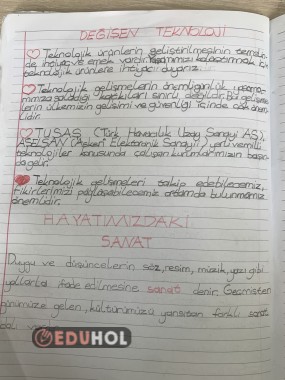 DEĞİŞEN TEKNOLOJİ
Teknolojik ürünlerin geliştirilmesinin temelin
de ihtiyaç ve emek vardır. kolaylaştırmak için
teknolojik ürünlere ihtiyacı duyarız...
Teknolojik gelişmelerin önemi günlük
mımıza sağladığı katkıları sınırı değildir. Bu gelişme
lerin ülkemizin gelişimi ve güvenliği içinde çok önem
lidir.
TUSAŞ (Türk Havacılık Uzay Sanayi AŞ),
ASELSAN (Askeri Elektronik Sanayii) yerli ve milli
teknolojiler konusunda çalışan kurumlarımızın başın
da gelir.
Teknolojik gelişmeleri takip edebileceğimiz,
Fikirlerimizi paylaşabileceğimiz ortamda bulunmamız
önemlidir.
HAYATIMIZDAKİ
SANAT
Duygu ve düşüncelerin söz, resim, müzik, yazı gibi
yollarla ifade edilmesine sanat denir. Geçmişten
günümüze gelen, kültürümüzü yansıtan farklı sanat
dalı
EDUHOL